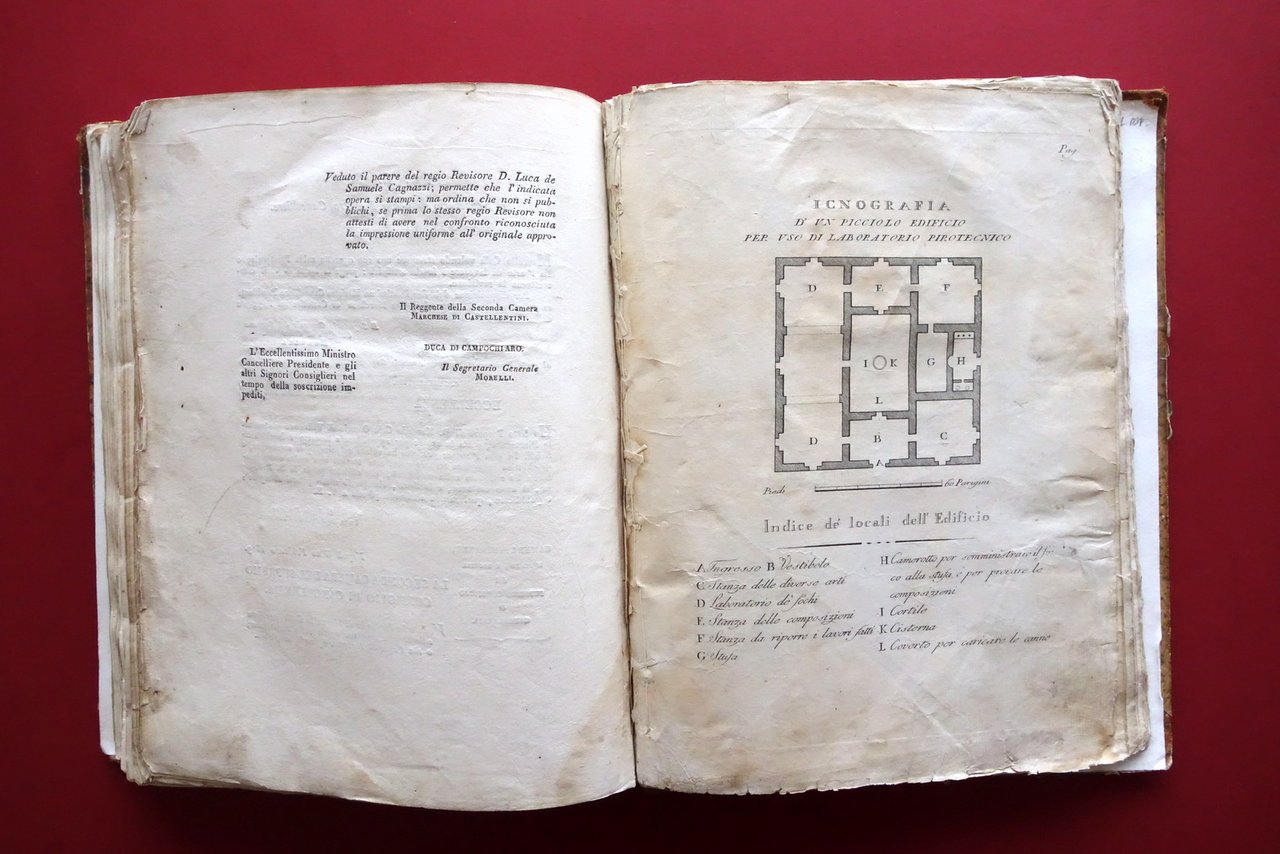 Veduto il parere del regio Revisore D. Luca de
Samuele Cagnazzi; permette che l'indicata
opera si stampi: ma ordina che non si pub-
blichi, se prima lo stesso regio Revisore non
attesti di avere nel confronto riconosciuta
la impressione uniforme all'originale appro-
vato.
Il Reggente della Seconda Camera
MARCHESE DI CASTELLENTINI.
DUCA DI CAMPOCHIARO.
L'Eccellentissimo Ministro
Cancelliere Presidente e gli
altri Signori Consiglieri nel
tempo della soscrizione im-
pediti,
Il Segretario Generale
MORELLI.
Pag
ICNOGRAFIA
D' VN PICCIOLO EDIFICIO
PER VSO DI LABORATORIO PIROTECNICO
D E F
I K G H
L
D B C
A
Piedi 60 Parigini
Indice de' locali dell' Edificio
A Ingresso B Vestibolo
C Stanza delle diverse arti
D Laboratorio de' fochi
E Stanza delle composizioni
F Stanza da riporre i lavori fatti
G Stufa
H Camerotto per somministrare il fo-
co alla stufa, e per provare le
composizioni
I Cortile
K Cisterna
L Coverto per caricare le canne